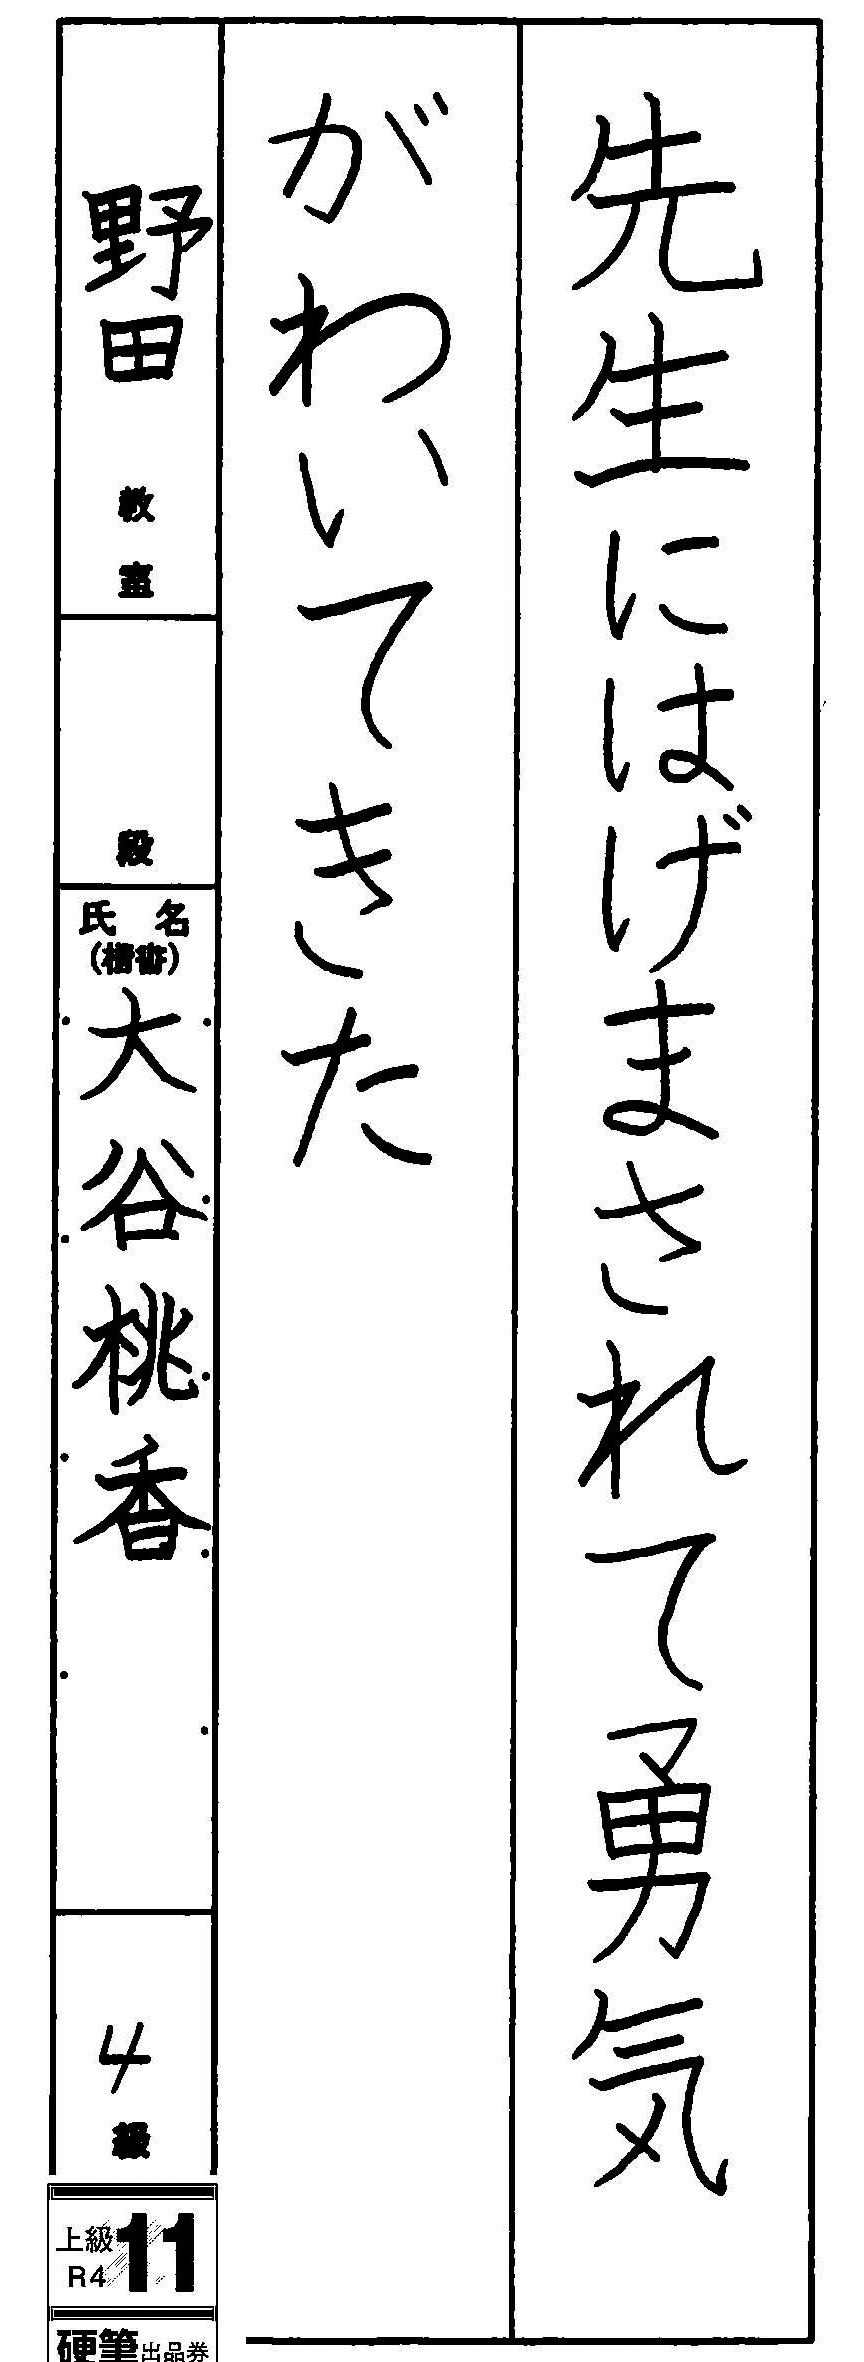 先生にはげまされて勇気
がわいてきた
野田 教室
段
氏名
(楷書)
大谷桃香
4 級
上級 11
R4
硬筆出品券